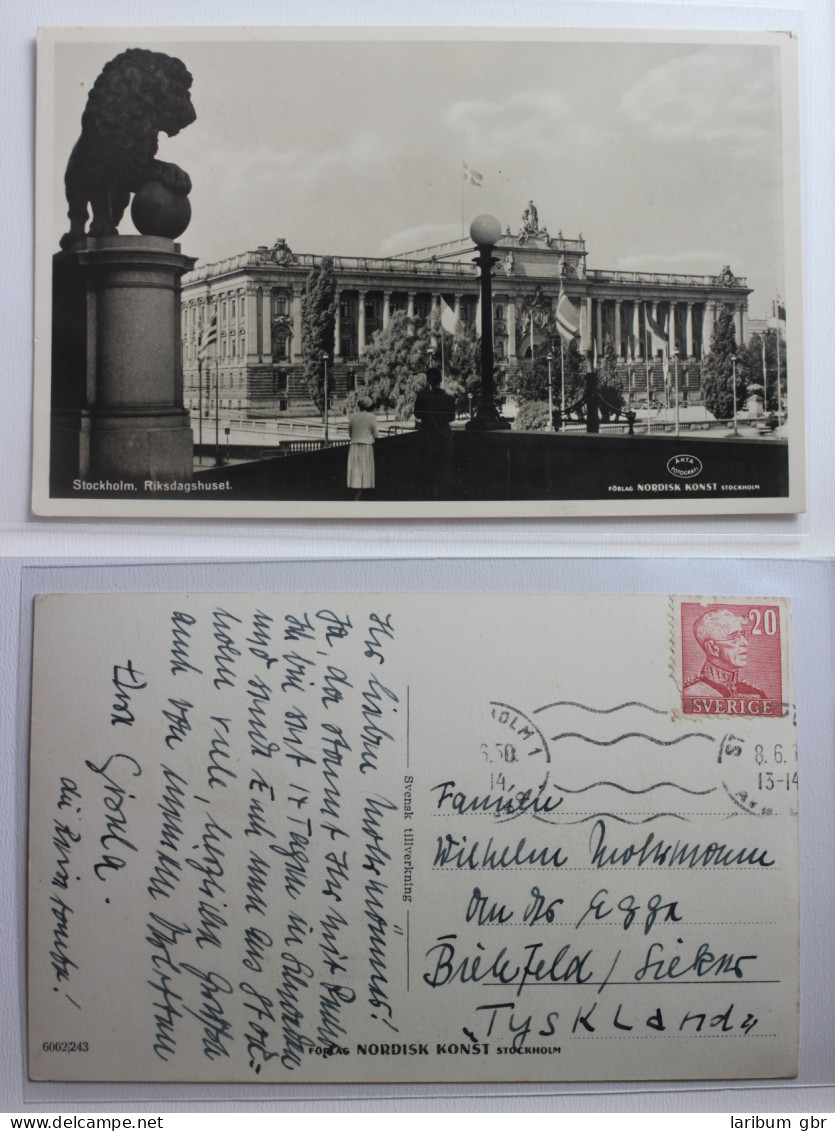 Stockholm. Riksdagshuset.
ÄKTA
FOTOGRAFI
FÖRLAG NORDISK KONST STOCKHOLM
20
SVERIGE
HOLM 1
6.50.
14
ST
8.6.
13-14
Svensk tillverkning
Ihr lieben
Ja, da staunt Ihr mit Recht,
Ich bin seit 14 Tagen in Schweden
und sende Euch nun aus Stock=
holm viele, herzliche Grüße
auch von
Eure Gisela.
die
Familie
Wilhelm
An der Egge
Bielefeld / Sieker
"Tyskland"
6002/243
FÖRLAG NORDISK KONST STOCKHOLM
laribum gbr